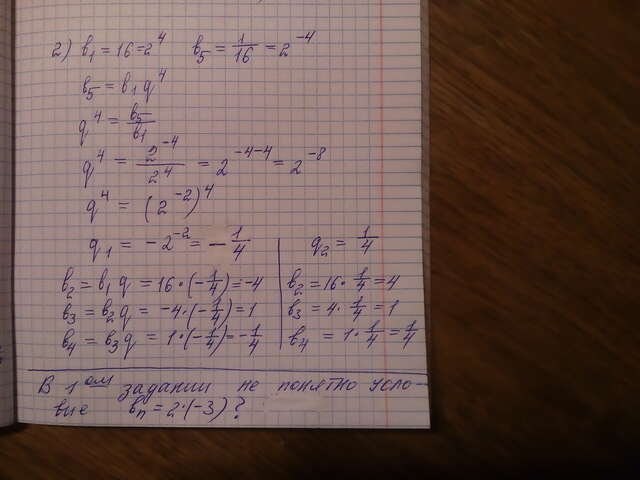 2) b₁ = 16 = 2⁴   b₅ = 1/16 = 2⁻⁴
b₅ = b₁q⁴
q⁴ = b₅/b₁
q⁴ = 2⁻⁴/2⁴ = 2⁻⁴⁻⁴ = 2⁻⁸
q⁴ = (2⁻²)⁴
q₁ = -2⁻² = -1/4   q₂ = 1/4
b₂ = b₁q = 16·(-1/4) = -4   b₂ = 16·1/4 = 4
b₃ = b₂q = -4·(-1/4) = 1   b₃ = 4·1/4 = 1
b₄ = b₃q = 1·(-1/4) = -1/4   b₄ = 1·1/4 = 1/4
В 1ом задании не понятно усло-
вие bₙ = 2·(-3)?